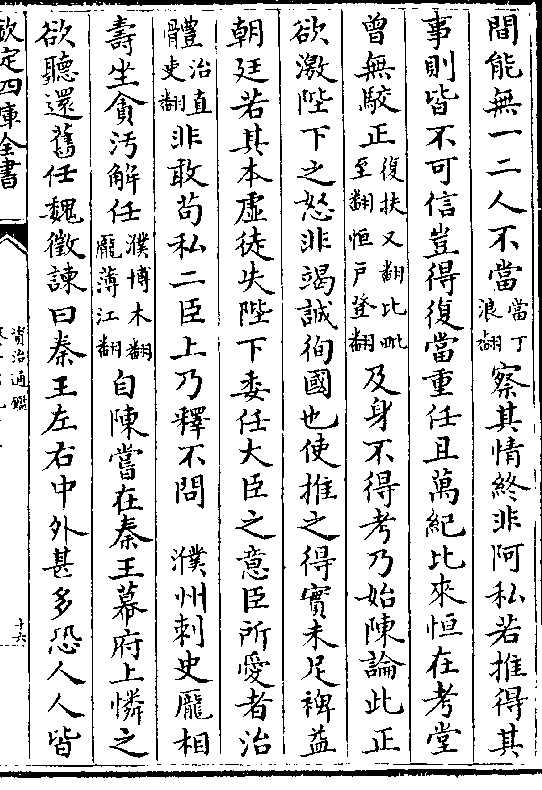 間能無一二人不當當丁浪翻察其情終非阿私若推得其
事則皆不可信豈得復當重任且萬紀比來恒在考堂
曾無駮正復扶又翻比毗至翻恒戶登翻及身不得考乃始陳論此正
欲激陛下之怒非竭誠徇國也使推之得實未足裨益
朝廷若其本虛徒失陛下委任大臣之意臣所愛者治
體治直吏翻非敢苟私二臣上乃釋不問 濮州刺史龐相
壽坐貪汚解任濮博木翻龐薄江翻自陳嘗在秦王幕府上憐之
欲聽還舊任魏徵諫曰秦王左右中外甚多恐人人皆
欽定四庫全書
資治通鑑
十六